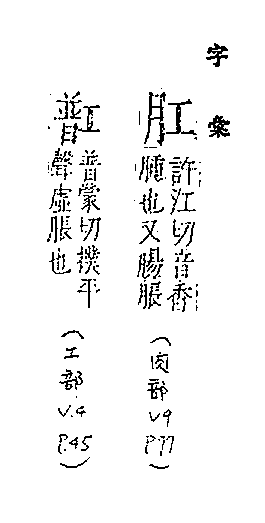 字彙
肛
許江切音香
腫也又腸脹
(肉部
V9
P.77)
普工
普蒙切撲平
聲虛脹也
(工部
V.4
P.45)